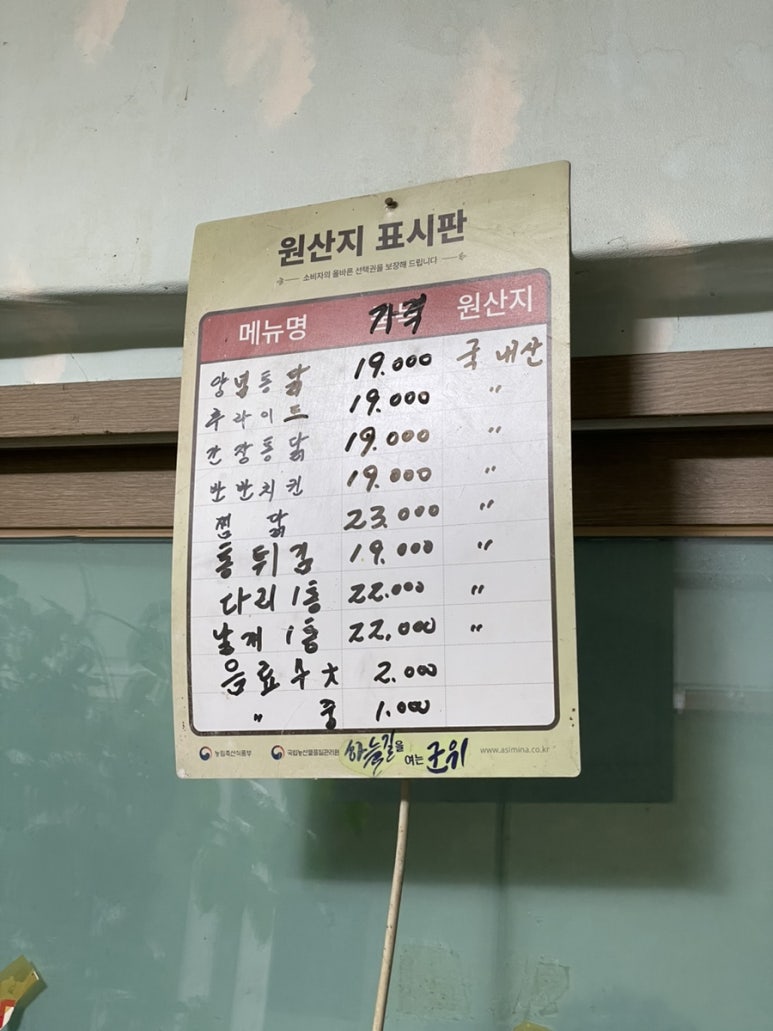 원산지 표시판
소비자의 올바른 선택권을 보장해 드립니다
메뉴명 가격 원산지
양념통닭 19.000 국내산
후라이드 19.000 〃
간장통닭 19.000 〃
반반치킨 19.000 〃
찜닭 23.000 〃
통튀김 19.000 〃
다리1통 22.000 〃
날개1통 22,000 〃
음료수大 2.000
〃 중 1.000
농림축산식품부 국립농산물품질관리원 하늘길을 여는 군위 www.asimina.co.kr